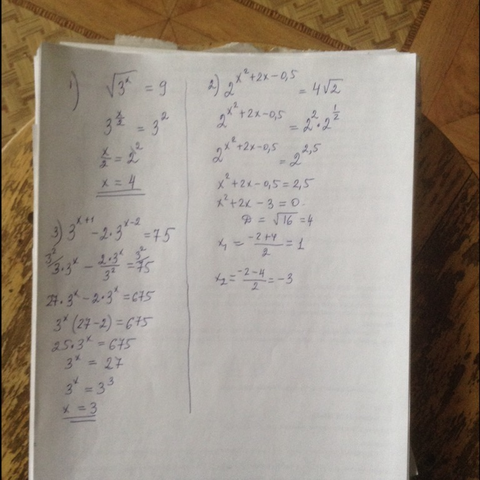 1) √3ˣ = 9
3^(x/2) = 3²
x/2 = 2²
x = 4
3) 3^(x+1) - 2·3^(x-2) = 75
3²/ 3·3ˣ - 2·3ˣ/3² = 3²/ 75
27·3ˣ - 2·3ˣ = 675
3ˣ(27-2) = 675
25·3ˣ = 675
3ˣ = 27
3ˣ = 3³
x = 3
2) 2^(x²+2x-0,5) = 4√2
2^(x²+2x-0,5) = 2²·2^(1/2)
2^(x²+2x-0,5) = 2^(2,5)
x²+2x-0,5 = 2,5
x²+2x-3 = 0
D = √16 = 4
x₁ = (-2+4)/2 = 1
x₂ = (-2-4)/2 = -3